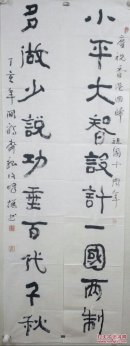 慶祝香港回歸
小平大智設計一國两制
建國十周年
多做少說功垂百代千秋
丁亥年